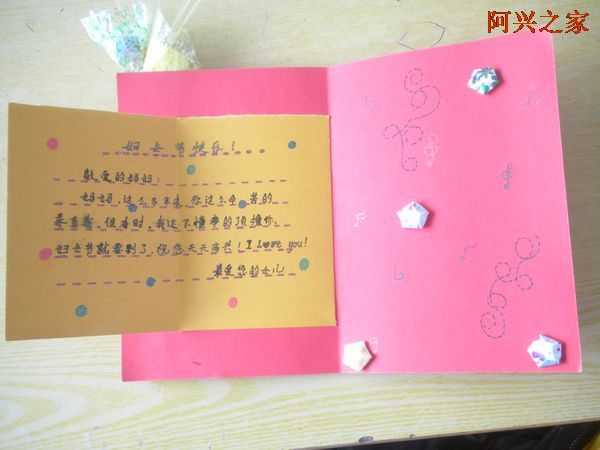 阿兴之家
妇女节快乐！...
敬爱的妈妈：
妈妈,这么多年来,您这么辛苦的
养育着,但有时,我还不懂事的顶撞你,
妇女节就要到了,祝您天天开心!I Love you!
最爱您的女儿